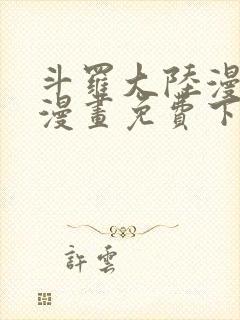 斗羅大陸漫
漫畫免費下
許雲